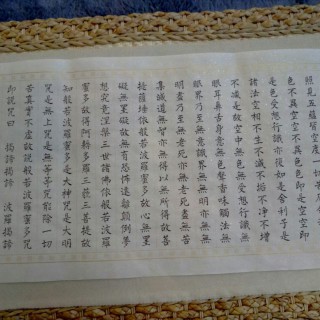 照見五蘊皆空度一切苦厄舍利子
色不異空空不異色色即是空空即
是色受想行識亦復如是舍利子是
諸法空相不生不滅不垢不净不增
不減是故空中無色無受想行識無
眼耳鼻舌身意無色聲香味觸法無
眼界乃至無意識界無無明亦無無
明盡乃至無老死亦無老死盡無苦
集滅道無智亦無得以無所得故菩
提薩埵依般若波羅蜜多故心無罣
礙無罣礙故無有恐怖遠離顛倒夢
想究竟涅槃三世諸佛依般若波羅
蜜多故得阿耨多羅三藐三菩提故
知般若波羅蜜多是大神咒是大明
咒是無上咒是無等等咒能除一切
苦真實不虛故說般若波羅蜜多咒
即說咒曰 揭諦揭諦 波羅揭諦